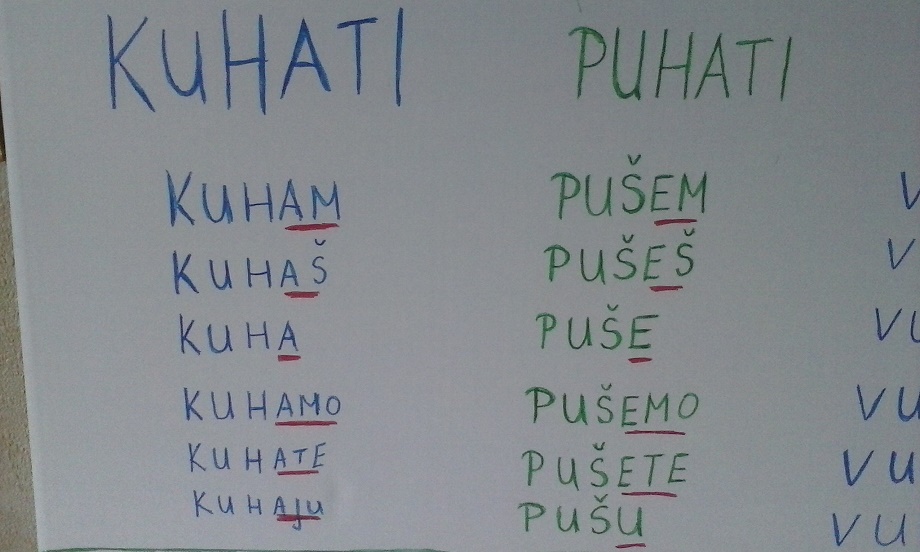 KUHATI PUHATI
KUHAM PUŠEM
KUHAŠ PUŠEŠ
KUHA PUŠE
KUHAMO PUŠEMO
KUHATE PUŠETE
KUHAJU PUŠU